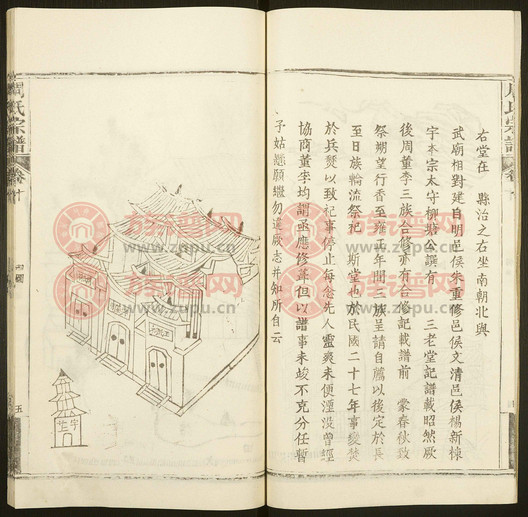 周氏宗譜
卷十
右堂在　縣治之右坐南朝北與
武廟相對建自明邑侯朱重修邑侯文清邑侯楊新棟
宇本宗太守柳塘公譔有　三老堂記譜載昭然厥
後周董李三族合修亦有合修記載譜前　蒙春秋致
祭朔望行香至雍正年間三族呈請自薦以後定於長
至日族輪流祭祀　斯堂也於民國二十七年事變焚
於兵燹以致祀事停止每念先人靈爽未便湮沒曾經
協商董李均謂函應修葺但以譜事未竣不克分任暫
子姑懸願繼勿違厥志并知所自云
周氏宗譜
卷十
五
族谱网
www.zupu.cn